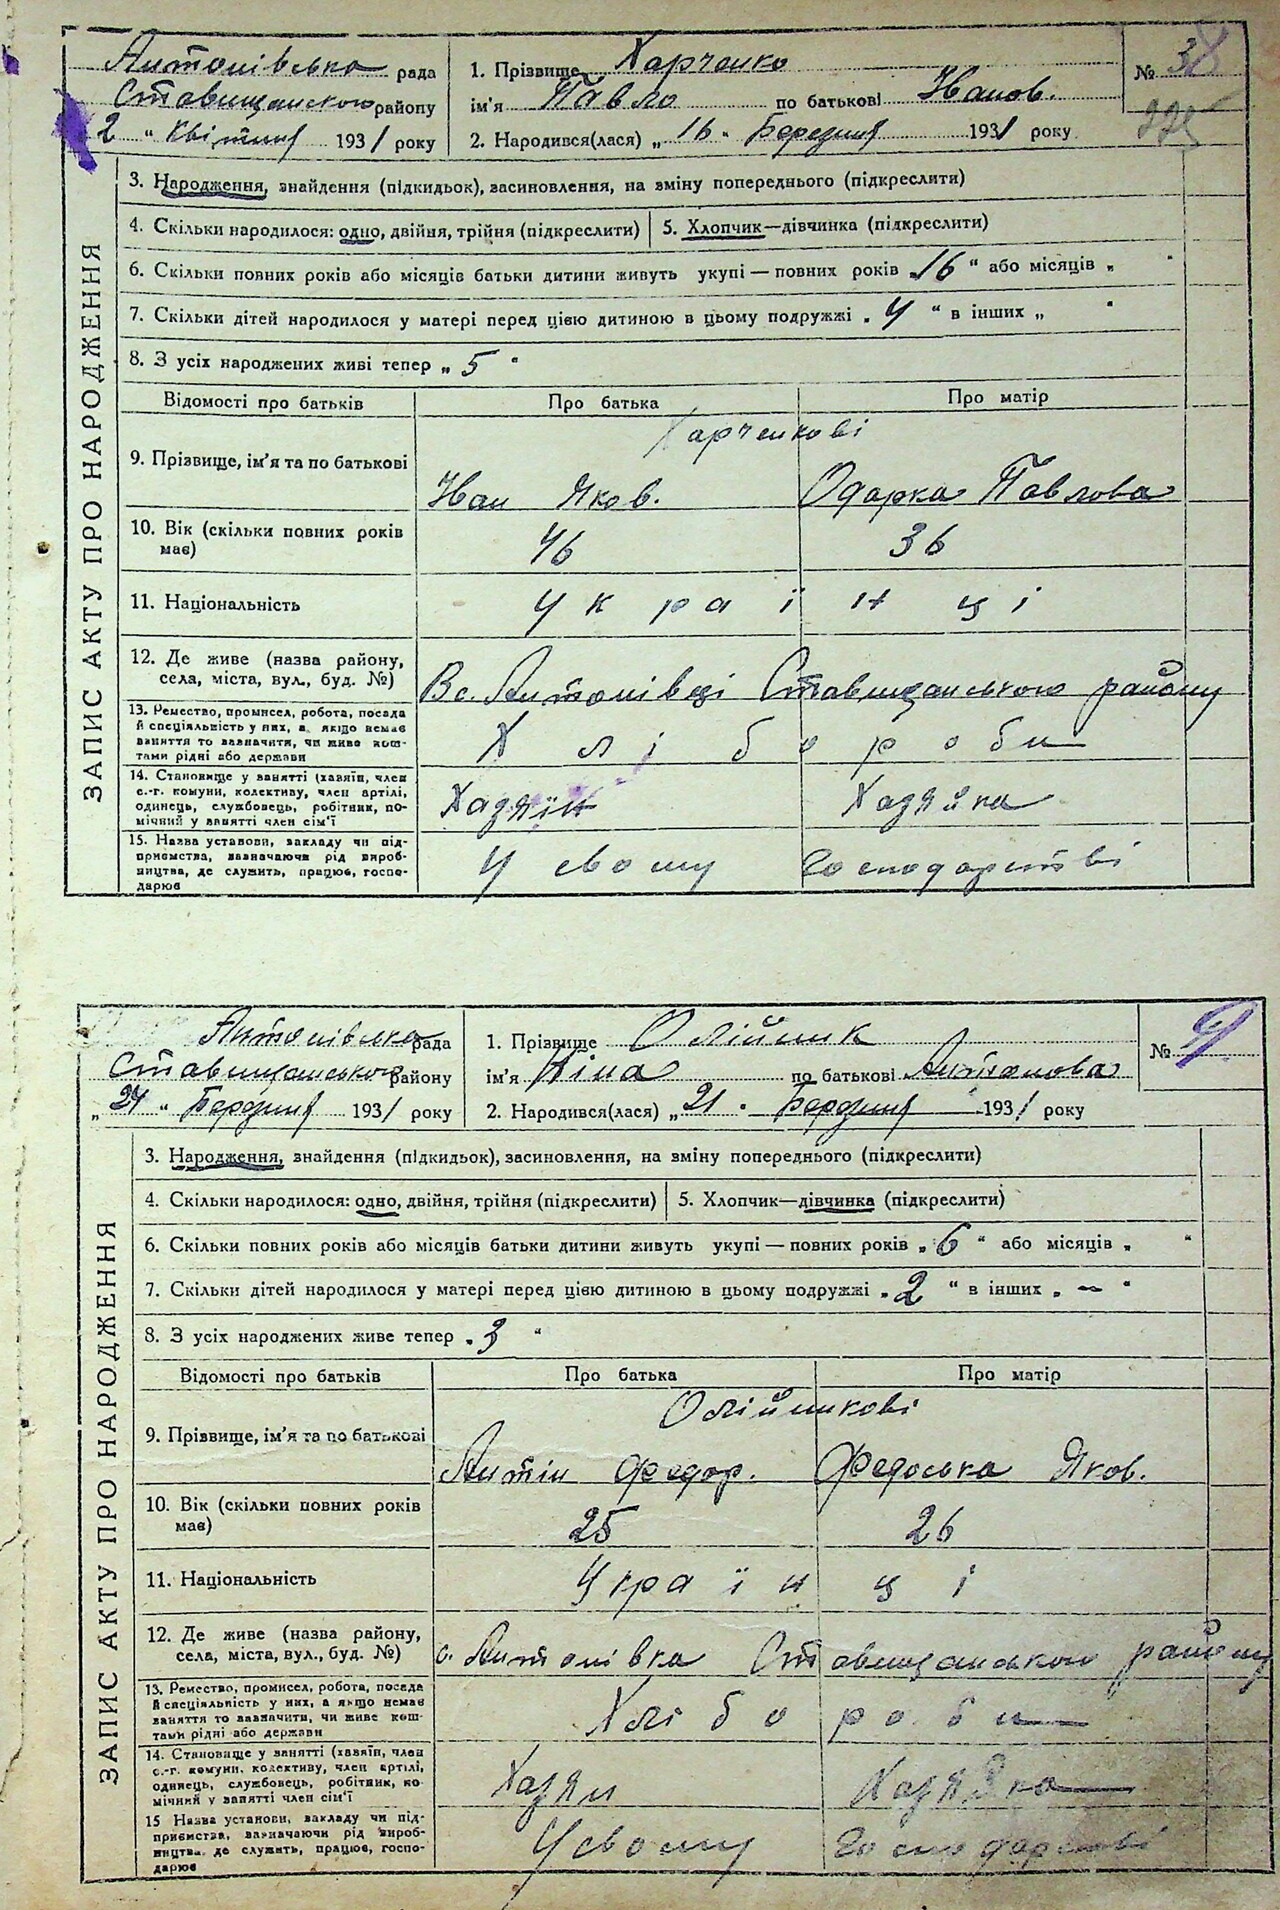 Антонівська рада
Ставищанського району
2 " Квітня 1931 року
1. Прізвище Харченко
ім'я Павло по батькові Іванов.
2. Народився(лася) „ 16 " Березня 1931 року
№ 38
225
ЗАПИС АКТУ ПРО НАРОДЖЕННЯ
3. Народження, знайдення (підкидьок), засиновлення, на зміну попереднього (підкреслити)
4. Скільки народилося: одно, двійня, трійня (підкреслити) 5. Хлопчик—дівчинка (підкреслити)
6. Скільки повних років або місяців батьки дитини живуть укупі — повних років „16" або місяців „ "
7. Скільки дітей народилося у матері перед цією дитиною в цьому подружжі „ 4 " в інших „ "
8. З усіх народжених живі тепер „ 5 "
Відомості про батьків Про батька Про матір
Харченкові
9. Прізвище, ім'я та по батькові
Іван Яков. Одарка Павлова
10. Вік (скільки повних років
має)
46 36
11. Національність Українці
12. Де живе (назва району,
села, міста, вул., буд. №)
В с. Антонівці Ставищанського району
13. Ремество, промисел, робота, посада
й спеціяльність у них, а якщо немає
заняття то зазначити, чи живе кош-
тами рідні або держави
Хлібороби
14. Становище у занятті (хазяїн, член
с.-г. комуни, колективу, член артілі,
одинець, службовець, робітник, по-
мічний у занятті член сім'ї
Хазяїн Хазяйка
15. Назва установи, закладу чи під-
приємства, зазначаючи рід вироб-
ництва, де служить, працює, госпо-
дарює
У свому господарстві
Антонівська рада
Ставищанського району
„ 24 " Березня 1931 року
1. Прізвище Олійник
ім'я Ніна по батькові Антонова
2. Народився(лася) „ 21 " Березня 1931 року
№ 4
ЗАПИС АКТУ ПРО НАРОДЖЕННЯ
3. Народження, знайдення (підкидьок), засиновлення, на зміну попереднього (підкреслити)
4. Скільки народилося: одно, двійня, трійня (підкреслити) 5. Хлопчик—дівчинка (підкреслити)
6. Скільки повних років або місяців батьки дитини живуть укупі — повних років „ 6 " або місяців „ "
7. Скільки дітей народилося у матері перед цією дитиною в цьому подружжі „ 2 " в інших „ — "
8. З усіх народжених живе тепер „ 3 "
Відомості про батьків Про батька Про матір
Олійникові
9. Прізвище, ім'я та по батькові
Антін Федор. Федоська Яков.
10. Вік (скільки повних років
має)
25 26
11. Національність Українці
12. Де живе (назва району,
села, міста, вул., буд. №)
с. Антонівка Ставищанського району
13. Ремество, промисел, робота, посада
й спеціяльність у них, а якщо немає
заняття то зазначити, чи живе кош-
тами рідні або держави
Хлібороби
14. Становище у занятті (хазяїн, член
с.-г. комуни, колективу, член артілі,
одинець, службовець, робітник, по-
мічний у занятті член сім'ї
Хазяїн Хазяйка
15 Назва установи, закладу чи під-
приємства, зазначаючи рід вироб-
ництва, де служить, працює, госпо-
дарює
У свому господарстві